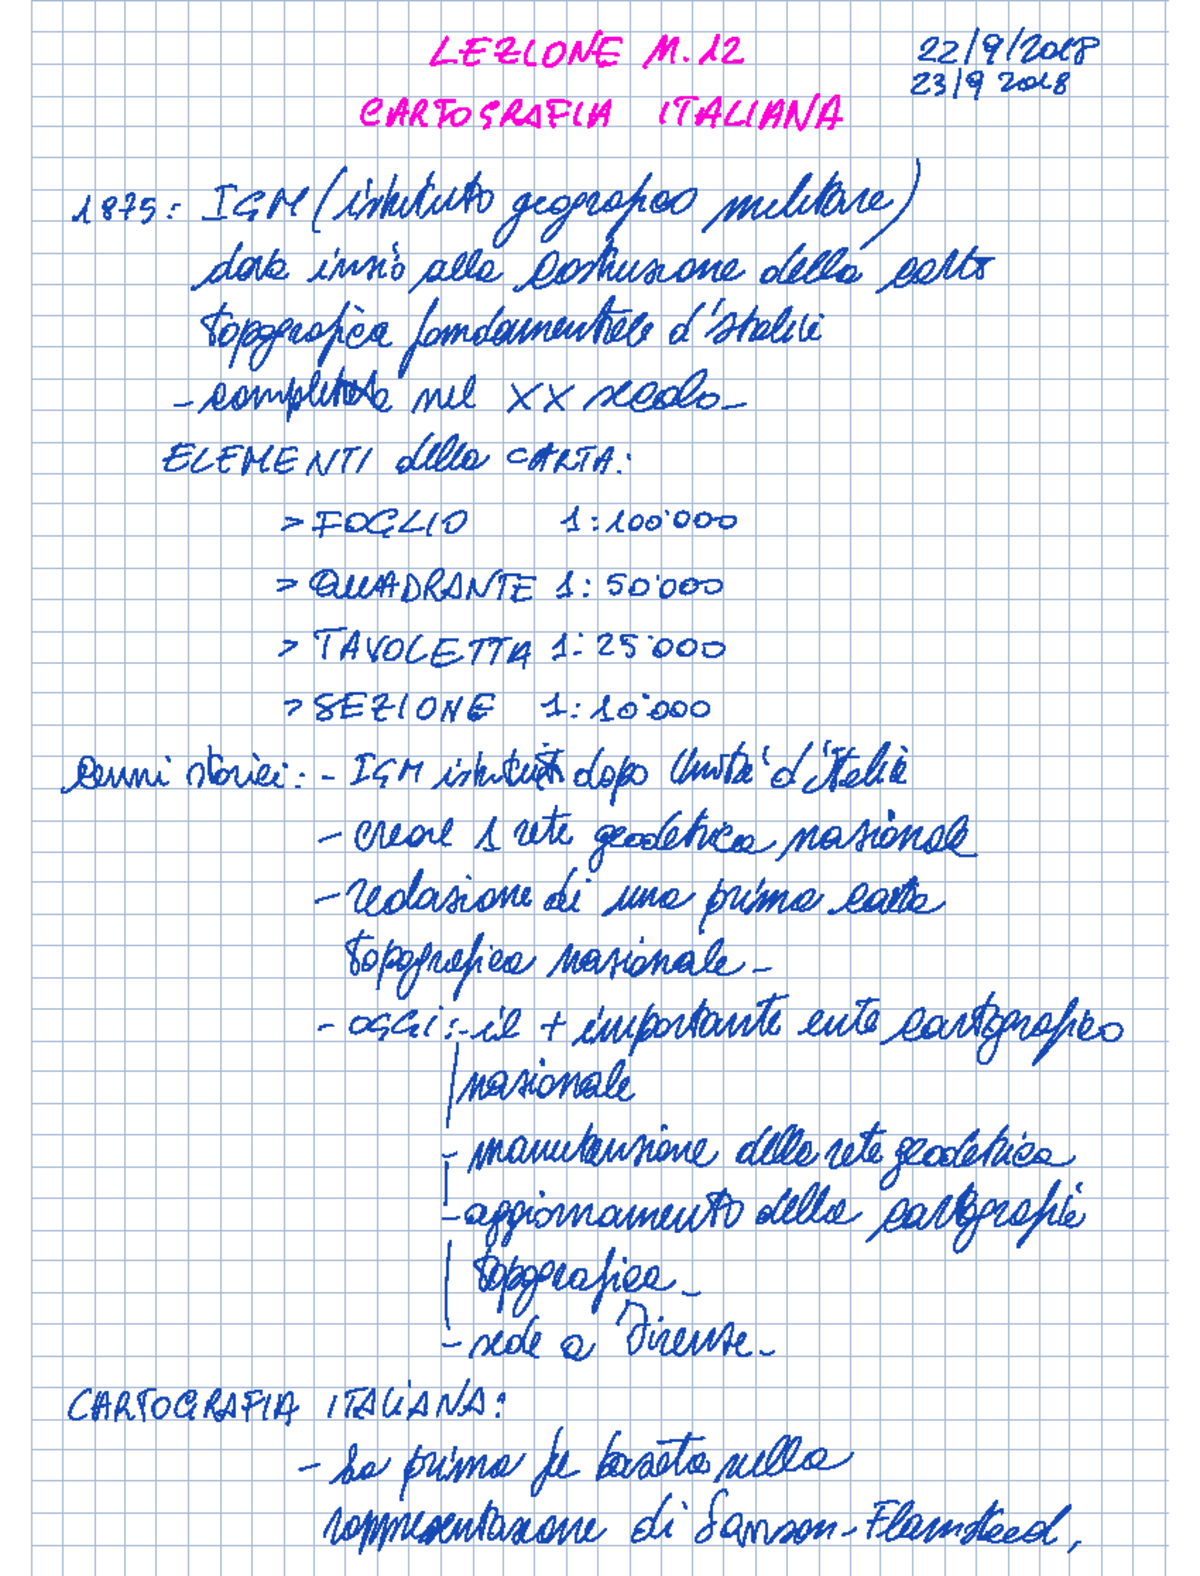 LEZIONE N.12
22/9/2018
23/9 2018
CARTOGRAFIA ITALIANA
1875: IGM (istituto geografico militare)
dato inizio alla costruzione della carta
topografica fondamentale d'Italia
- completata nel XX secolo -
ELEMENTI della CARTA:
> FOGLIO 1:100'000
> QUADRANTE 1:50'000
> TAVOLETTA 1:25'000
> SEZIONE 1:10'000
Cenni storici: - IGM istituito dopo Unità d'Italia
- creare 1 rete geodetica nazionale
- redazione di una prima carta
topografica nazionale -
- OGGI: - il + importante ente cartografico
nazionale
- manutenzione della rete geodetica
- aggiornamento della cartografia
topografica -
- sede a Firenze -
CARTOGRAFIA ITALIANA:
- la prima fu basata sulla
rappresentazione di Sanson-Flamsteed,